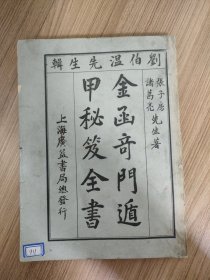 劉伯溫先生輯
張子房
諸葛亮 先生著
金函奇門遁
甲秘笈全書
上海廣益書局總發行